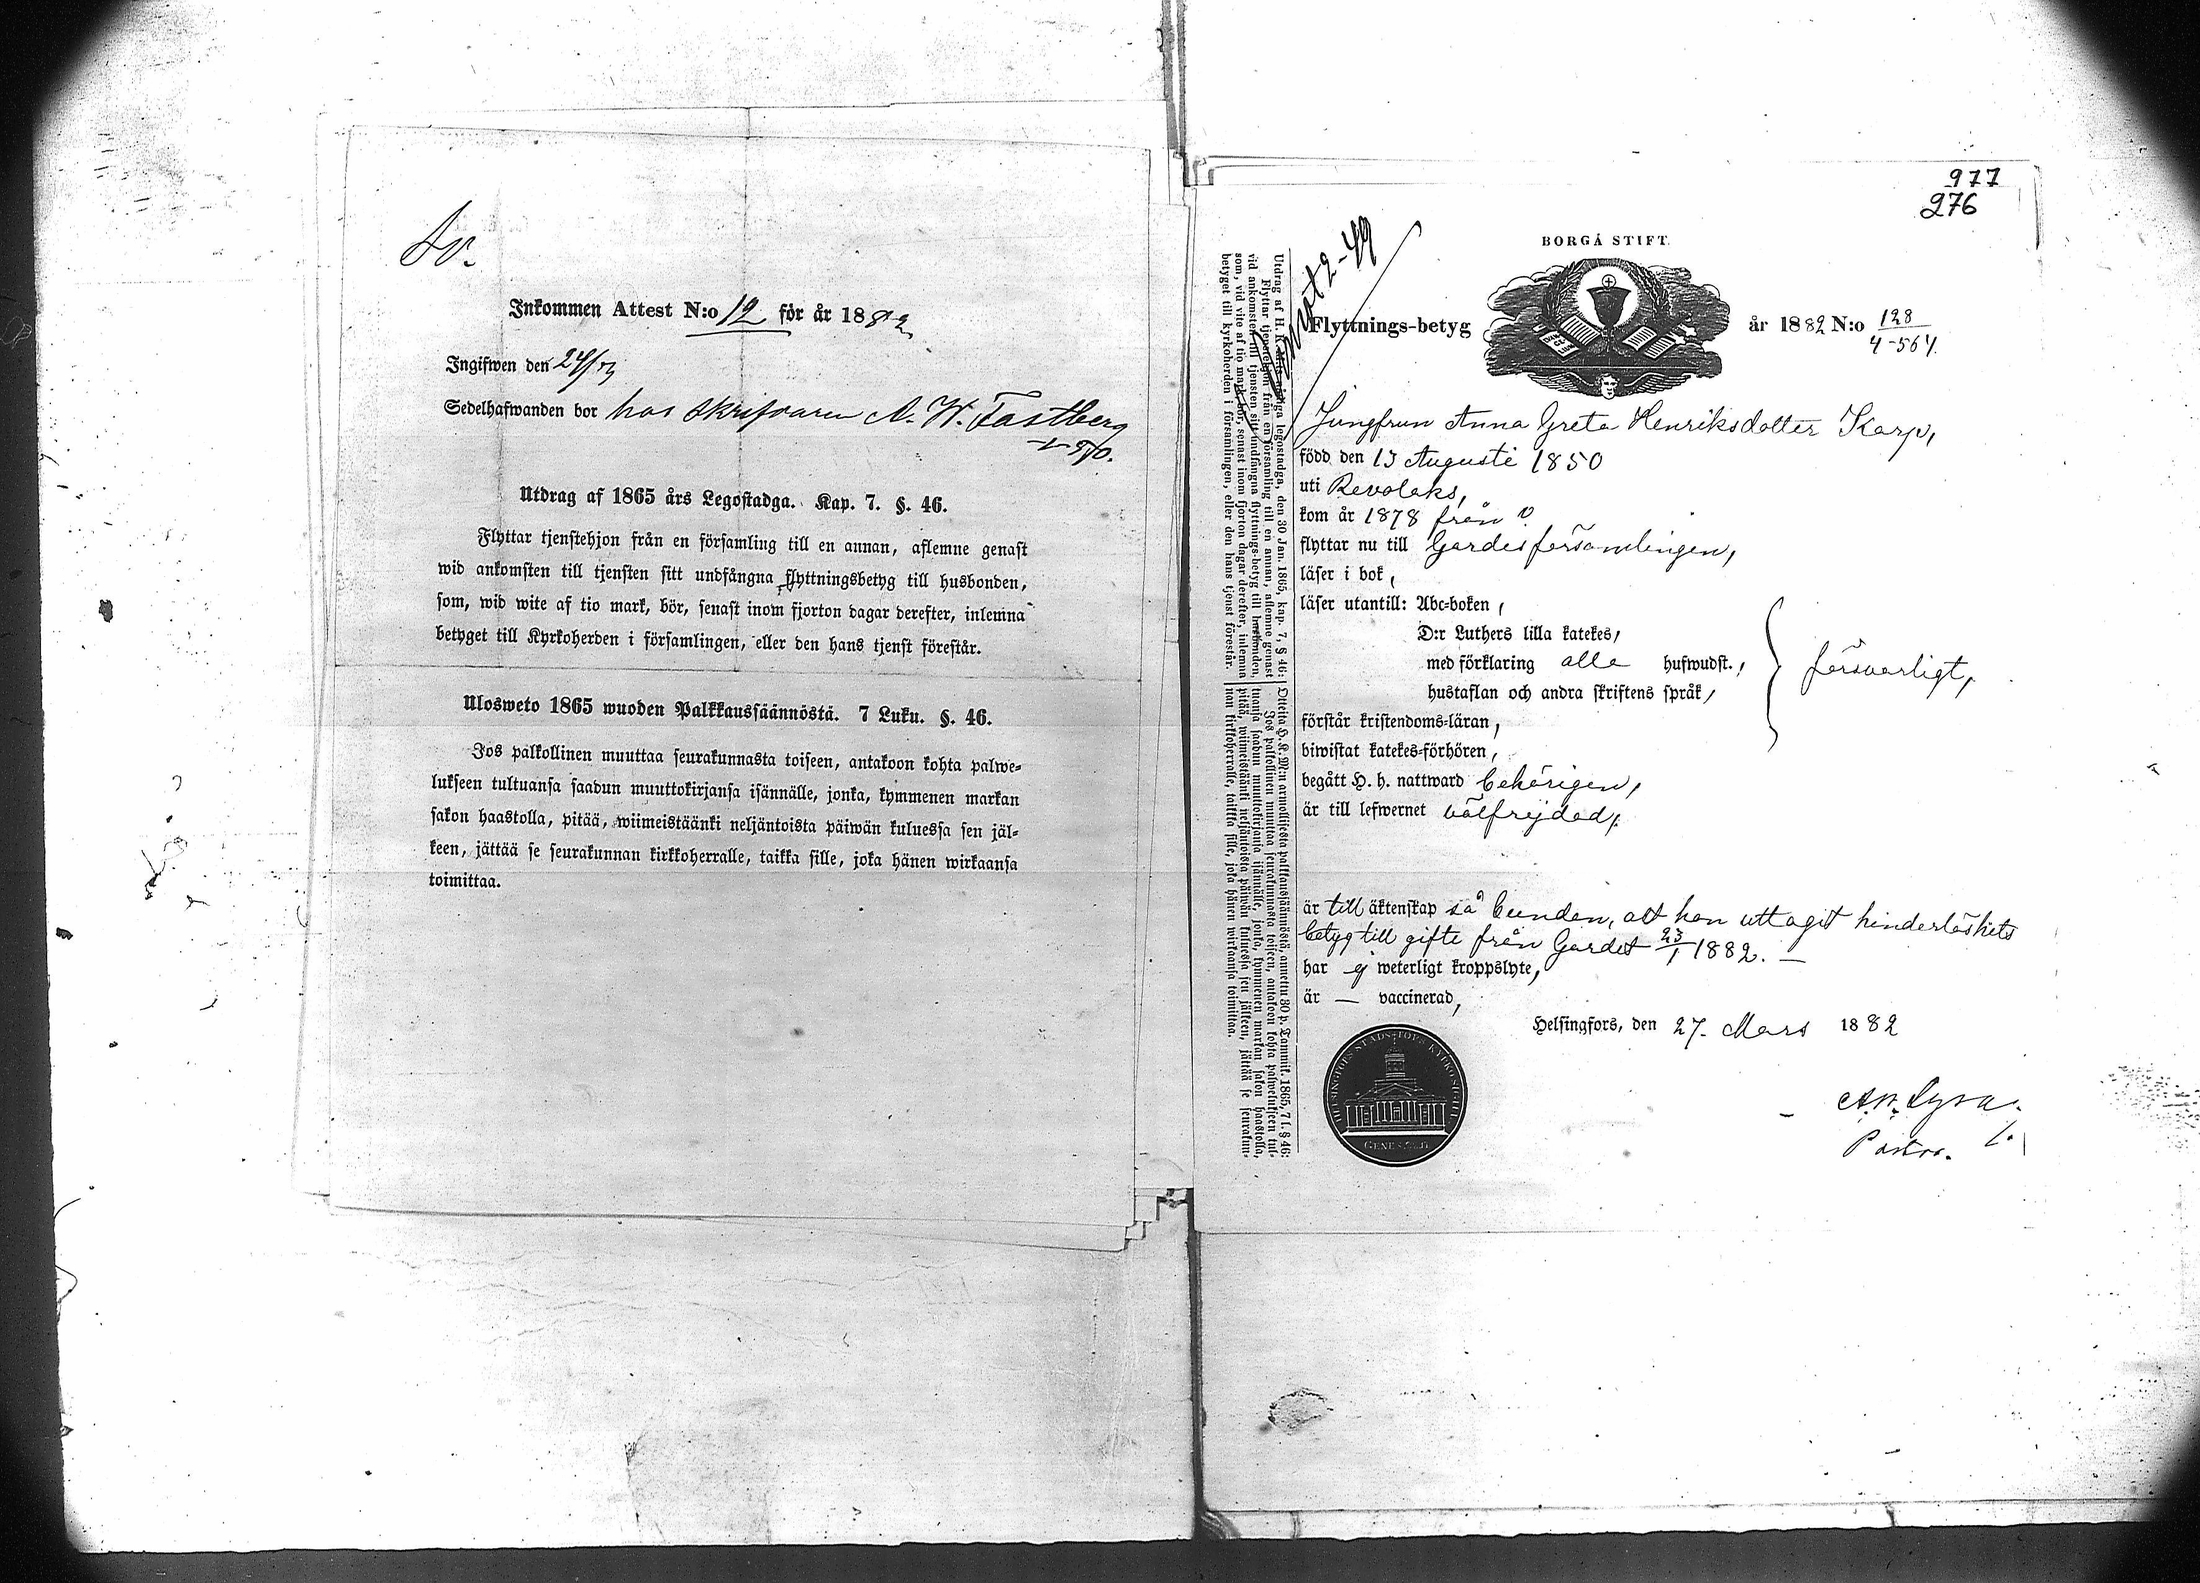 Inkommen Attest N:o 12 för år 1882
Ingifwen den 24/
Sedelhafwanden bor hos skrifvaren A. W. Fastberg
Utdrag af 1865 års Legostadga. Kap. 7. §. 46.
Flyttar tjenstehjon från en församling till en annan, aflemne genast
wid ankomsten till tjensten sitt undfångna flyttningsbetyg till husbonden,
som, wid wite af tio mark, bör, senast inom fjorton dagar derefter, inlemna
betyget till Kyrkoherden i församlingen, eller den hans tjenst förestår.
Ulosweto 1865 wuoden Palkkaussäännöstä. 7 Luku. §. 46.
Jos palkollinen muuttaa seurakunnasta toiseen, antakoon kohta palwe-
lukseen tultuansa saadun muuttokirjansa isännälle, jonka, kymmenen markan
sakon haastolla, pitää, wiimeistäänki neljäntoista päiwän kuluessa sen jäl-
keen, jättää se seurakunnan kirkkoherralle, taikka sille, joka hänen wirkaansa
toimittaa.
977
276
BORGÅ STIFT.
Flyttnings-betyg år 1882 N:o 128
4-564.
Jungfrun Anna Greta Henriksdotter Karp,
född den 13 Augusti 1850
uti Revolaks,
kom år 1878 från
flyttar nu till Gardesförsamlingen,
läser i bok,
läser utantill: Abc-boken,
D:r Luthers lilla katekes,
med förklaring alla hufwudst.,
hustaflan och andra skriftens språk,
försvarligt,
förstår kristendoms-läran,
biwistat katekes-förhören,
begått H. h. nattward behörigen,
är till lefwernet välfrejdad,
är till äktenskap så bunden, att hon uttagit hinderlöshets
betyg till gifte från Gardet 23/1 1882. —
har ej weterligt kroppslyte,
är — vaccinerad,
Helsingfors, den 27. Mars 1882
Pastor.
Utdrag af H. K. M:ts nådiga legostadga, den 30 Jan. 1865, kap. 7, § 46:
Flyttar tjenstehjon från en församling till en annan, aflemne genast
vid ankomsten till tjensten sitt undfångna flyttnings-betyg till husbonden,
som, vid vite af tio mark, bör, senast inom fjorton dagar derefter, inlemna
betyget till kyrkoherden i församlingen, eller den hans tjenst förestår.
Otteita H. K. M:n armollisesta palkkaussäännöstä, annettu 30 p. Tammik. 1865, 7 l. § 46:
Jos palkollinen muuttaa seurakunnasta toiseen, antakoon kohta palwelukseen tul-
tuansa saadun muuttokirjansa isännälle, jonka, kymmenen markan sakon haastolla,
pitää, wiimeistäänki neljäntoista päiwän kuluessa sen jälkeen, jättää se seurakun-
nan kirkkoherralle, taikka sille, joka hänen wirkaansa toimittaa.